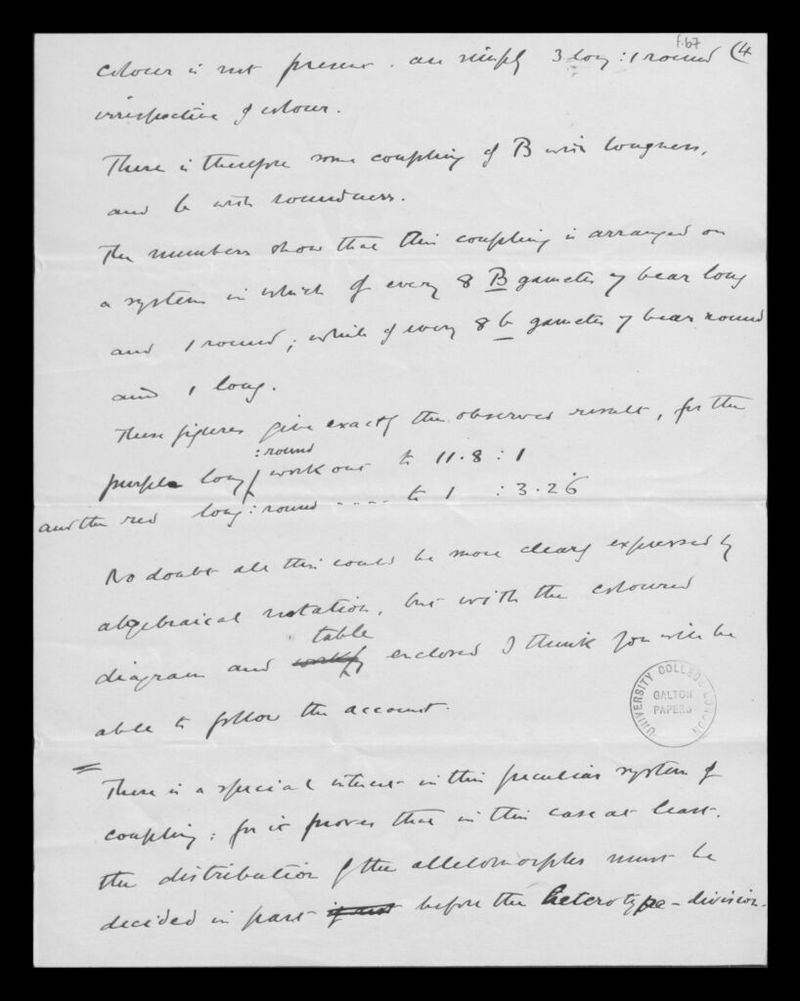 f.67
colour is not present. are simply 3 long : 1 round (4
irrespective of colour.
There is therefore some coupling of B with longness,
and b with roundness.
The numbers show that this coupling is arranged on
a system in which of every 8 B gametes 7 bear long
and 1 round; while of every 8 b gametes 7 bear round
and 1 long.
These figures give exactly the observed result, for the
: round
purple long work out to 11.8 : 1
and the red long : round - - - - to 1 : 3.26
No doubt all this could be more clearly expressed by
algebraical notation, but with the coloured
table
diagram and enclosed I think you will be
able to follow the account.
UNIVERSITY COLLEGE LONDON
GALTON
PAPERS
There is a special interest in this peculiar system of
coupling; for it proves that in this case at least,
the distribution of the allelomorphs must be
decided in part if not before the heterotype-division.